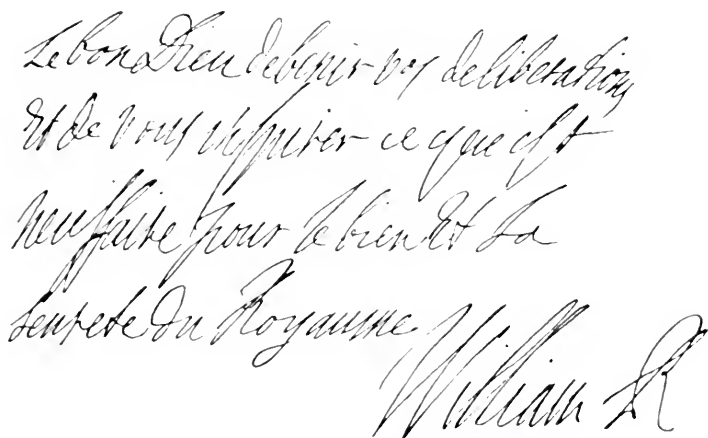 Le bon Dieu de benir vos deliberations
Et de vous inspirer ce que est
necessaire pour le bien Et La
seurete du Royaume
William R